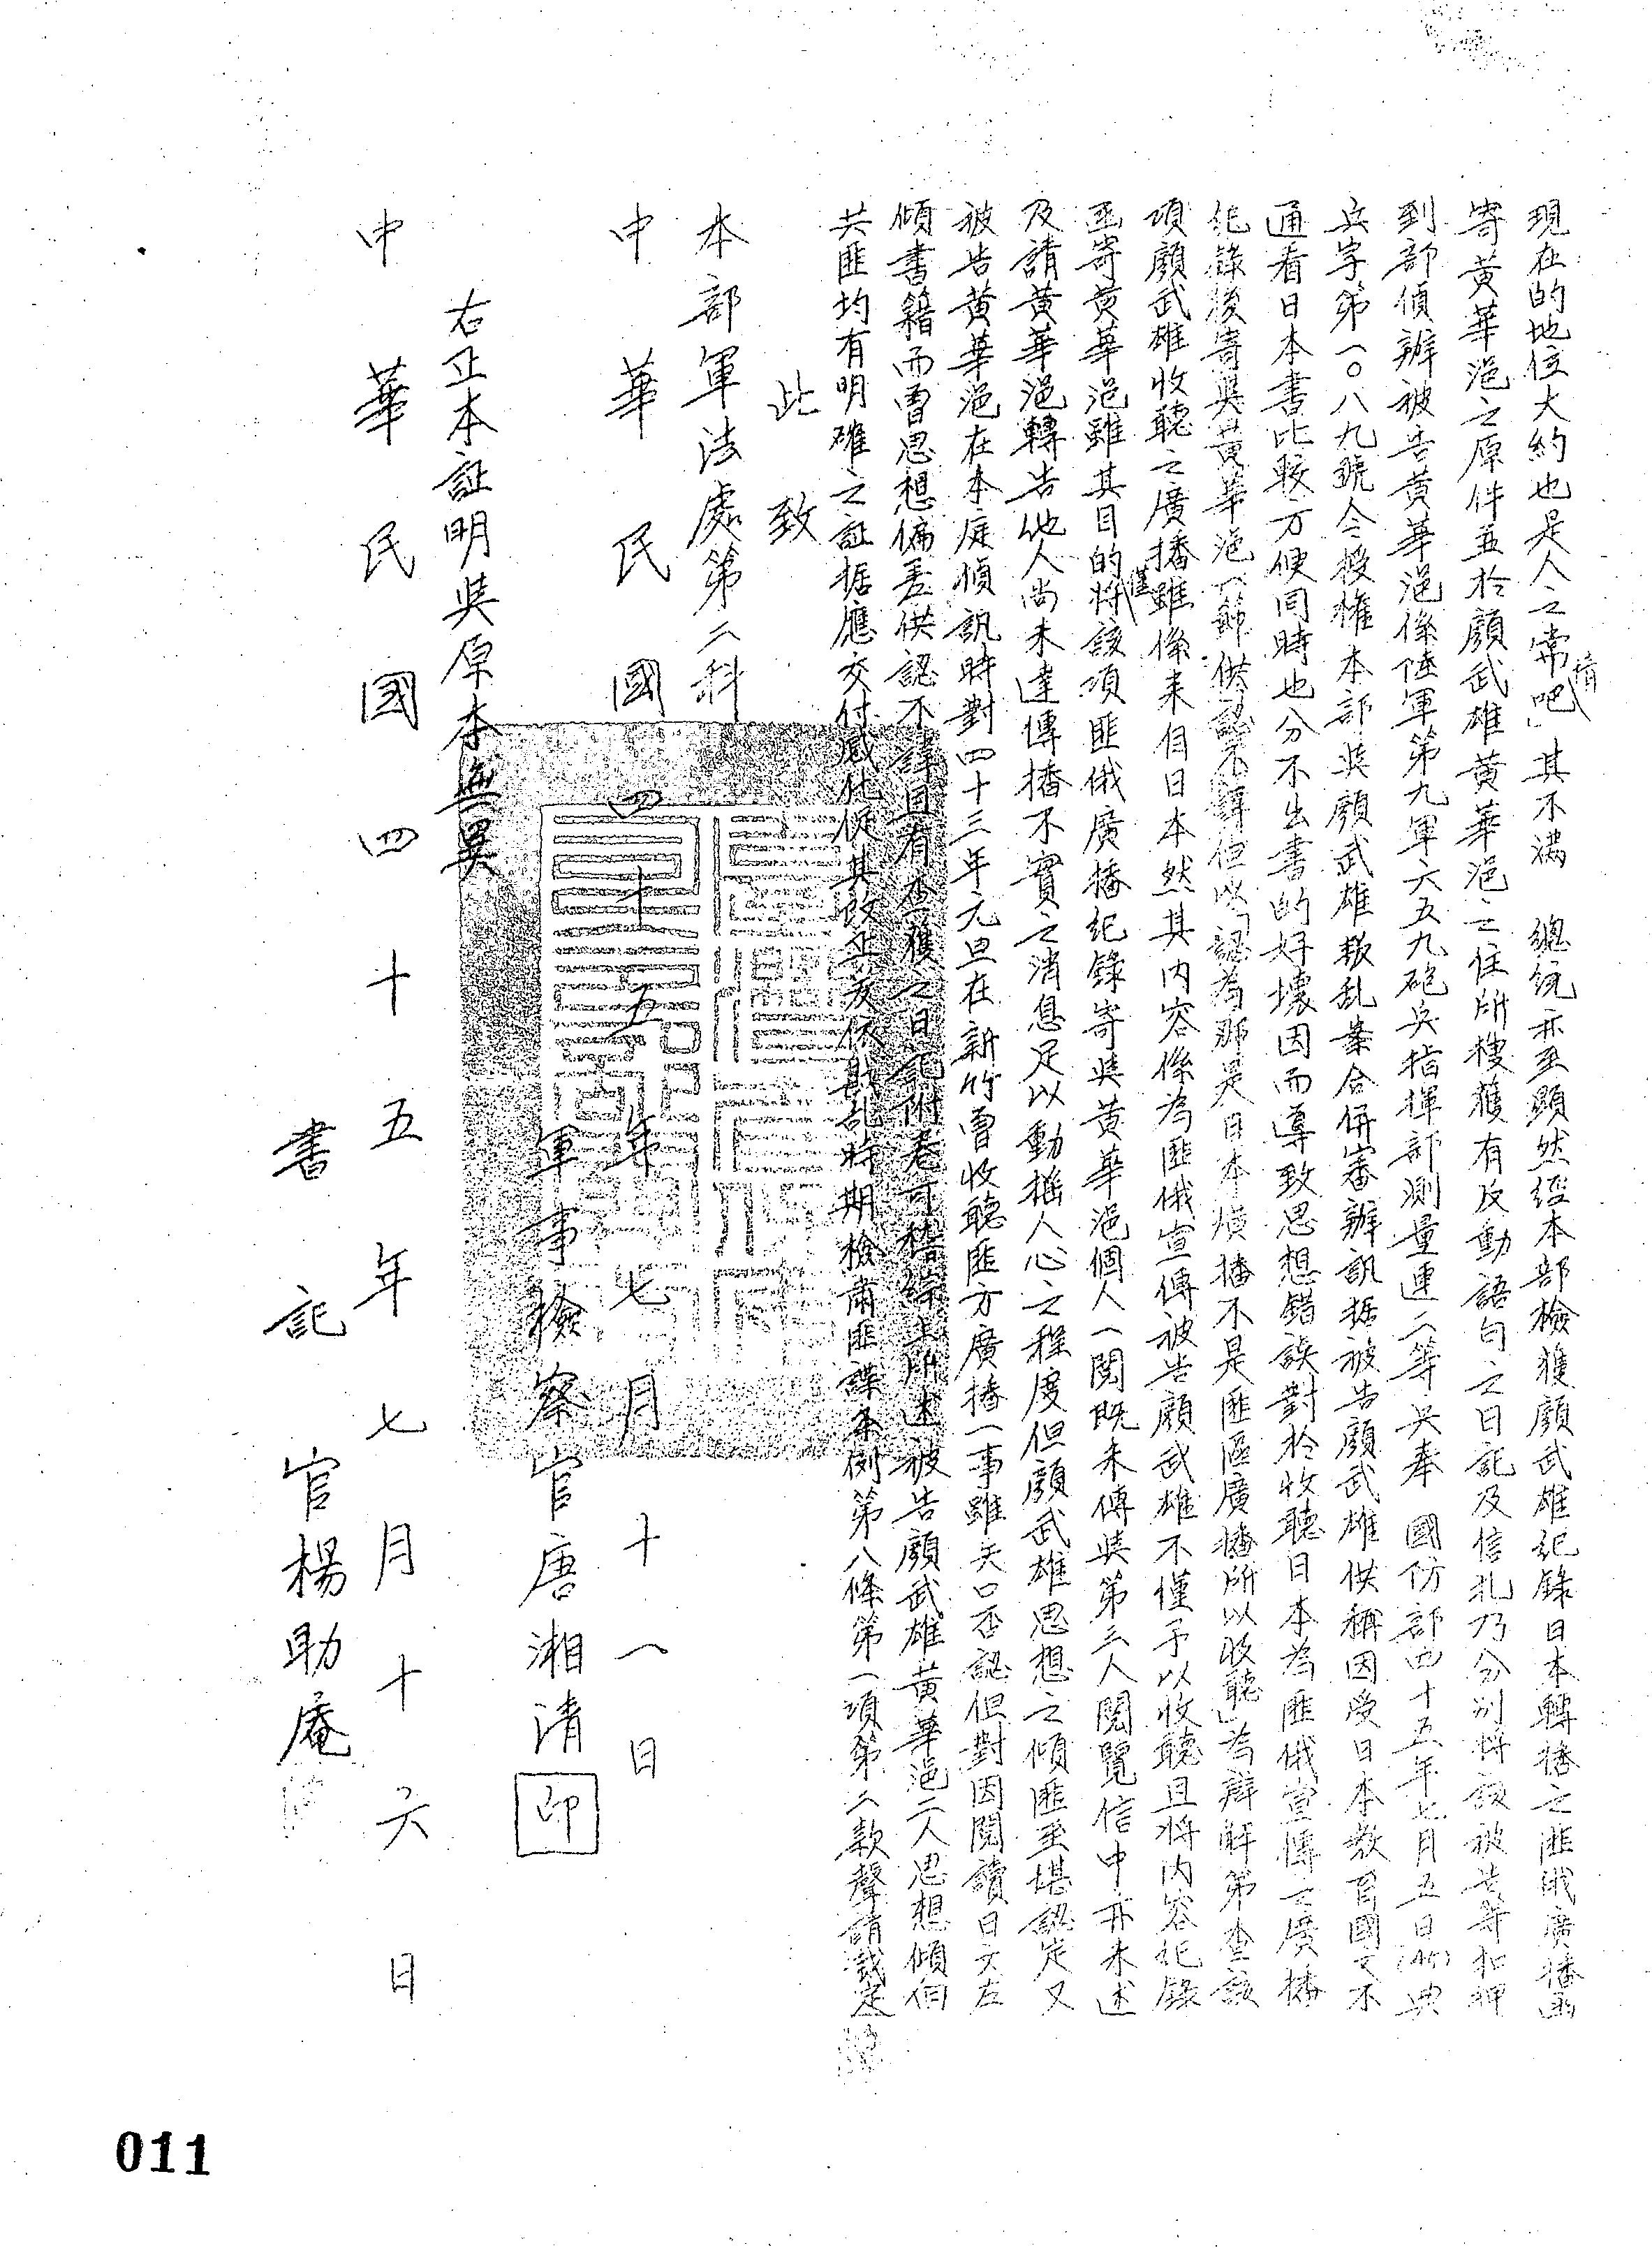 現在的地位大約也是人之常情吧」其不滿　總統亦至顯然經本部檢獲顏武雄紀錄日本轉播之匪俄廣播函
寄黃華浥之原件並於顏武雄黃華浥之住所搜獲有反動語句之日記及信札乃分別將該被告等扣押
到部偵辦被告黃華浥係陸軍第九軍六五九砲兵指揮部測量連二等兵奉　國防部四十五年七月五日(45)典
兵字第一〇八九號令授權本部與顏武雄叛乱案合併審辦訊据被告顏武雄供稱因受日本教育國文不
通看日本書比較方便同時也分不出書的好壞因而導致思想錯誤對於收聽日本為匪俄宣傳之廣播
紀錄後寄與黃華浥一節供認不諱但以「認為那是日本廣播不是匪區廣播所以收聽」為辯解第查該
項顏武雄收聽之廣播雖係來自日本然其內容係為匪俄宣傳被告顏武雄不僅予以收聽且將內容紀錄
函寄黃華浥雖其目的僅將該項匪俄廣播紀錄寄與黃華浥個人一閱既未傳與第三人閱覽信中亦未述
及請黃華浥轉告他人尚未達傳播不實之消息足以動搖人心之程度但顏武雄思想之傾匪至堪認定又
被告黃華浥在本庭偵訊時對四十三年元旦在新竹曾收聽匪方廣播一事雖矢口否認但對因閱讀日文左
傾書籍而曾思想偏差供認不諱且有查獲之日記附卷可稽綜上所述被告顏武雄黃華浥二人思想傾向
共匪均有明確之証据應交付感化促其改正爰依戡乱時期檢肅匪諜条例第八條第一項第二款聲請裁定
此致
本部軍法處第二科
中華民國四十五年七月十一日
軍事檢察官唐湘清 印
右正本証明與原本無異
中華民國四十五年七月十六日
書記官楊助庵
011